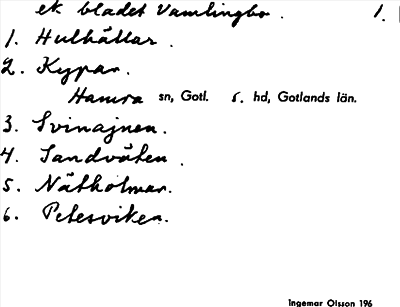 ek bladet Vamlingbo. 1.
1. Hulhällar.
2. Kypar.
Hamra sn, Gotl. S. hd, Gotlands län.
3. Svinajnen.
4. Sandväten.
5. Nätholmar.
6. Petesviken.
Ingemar Olsson 196